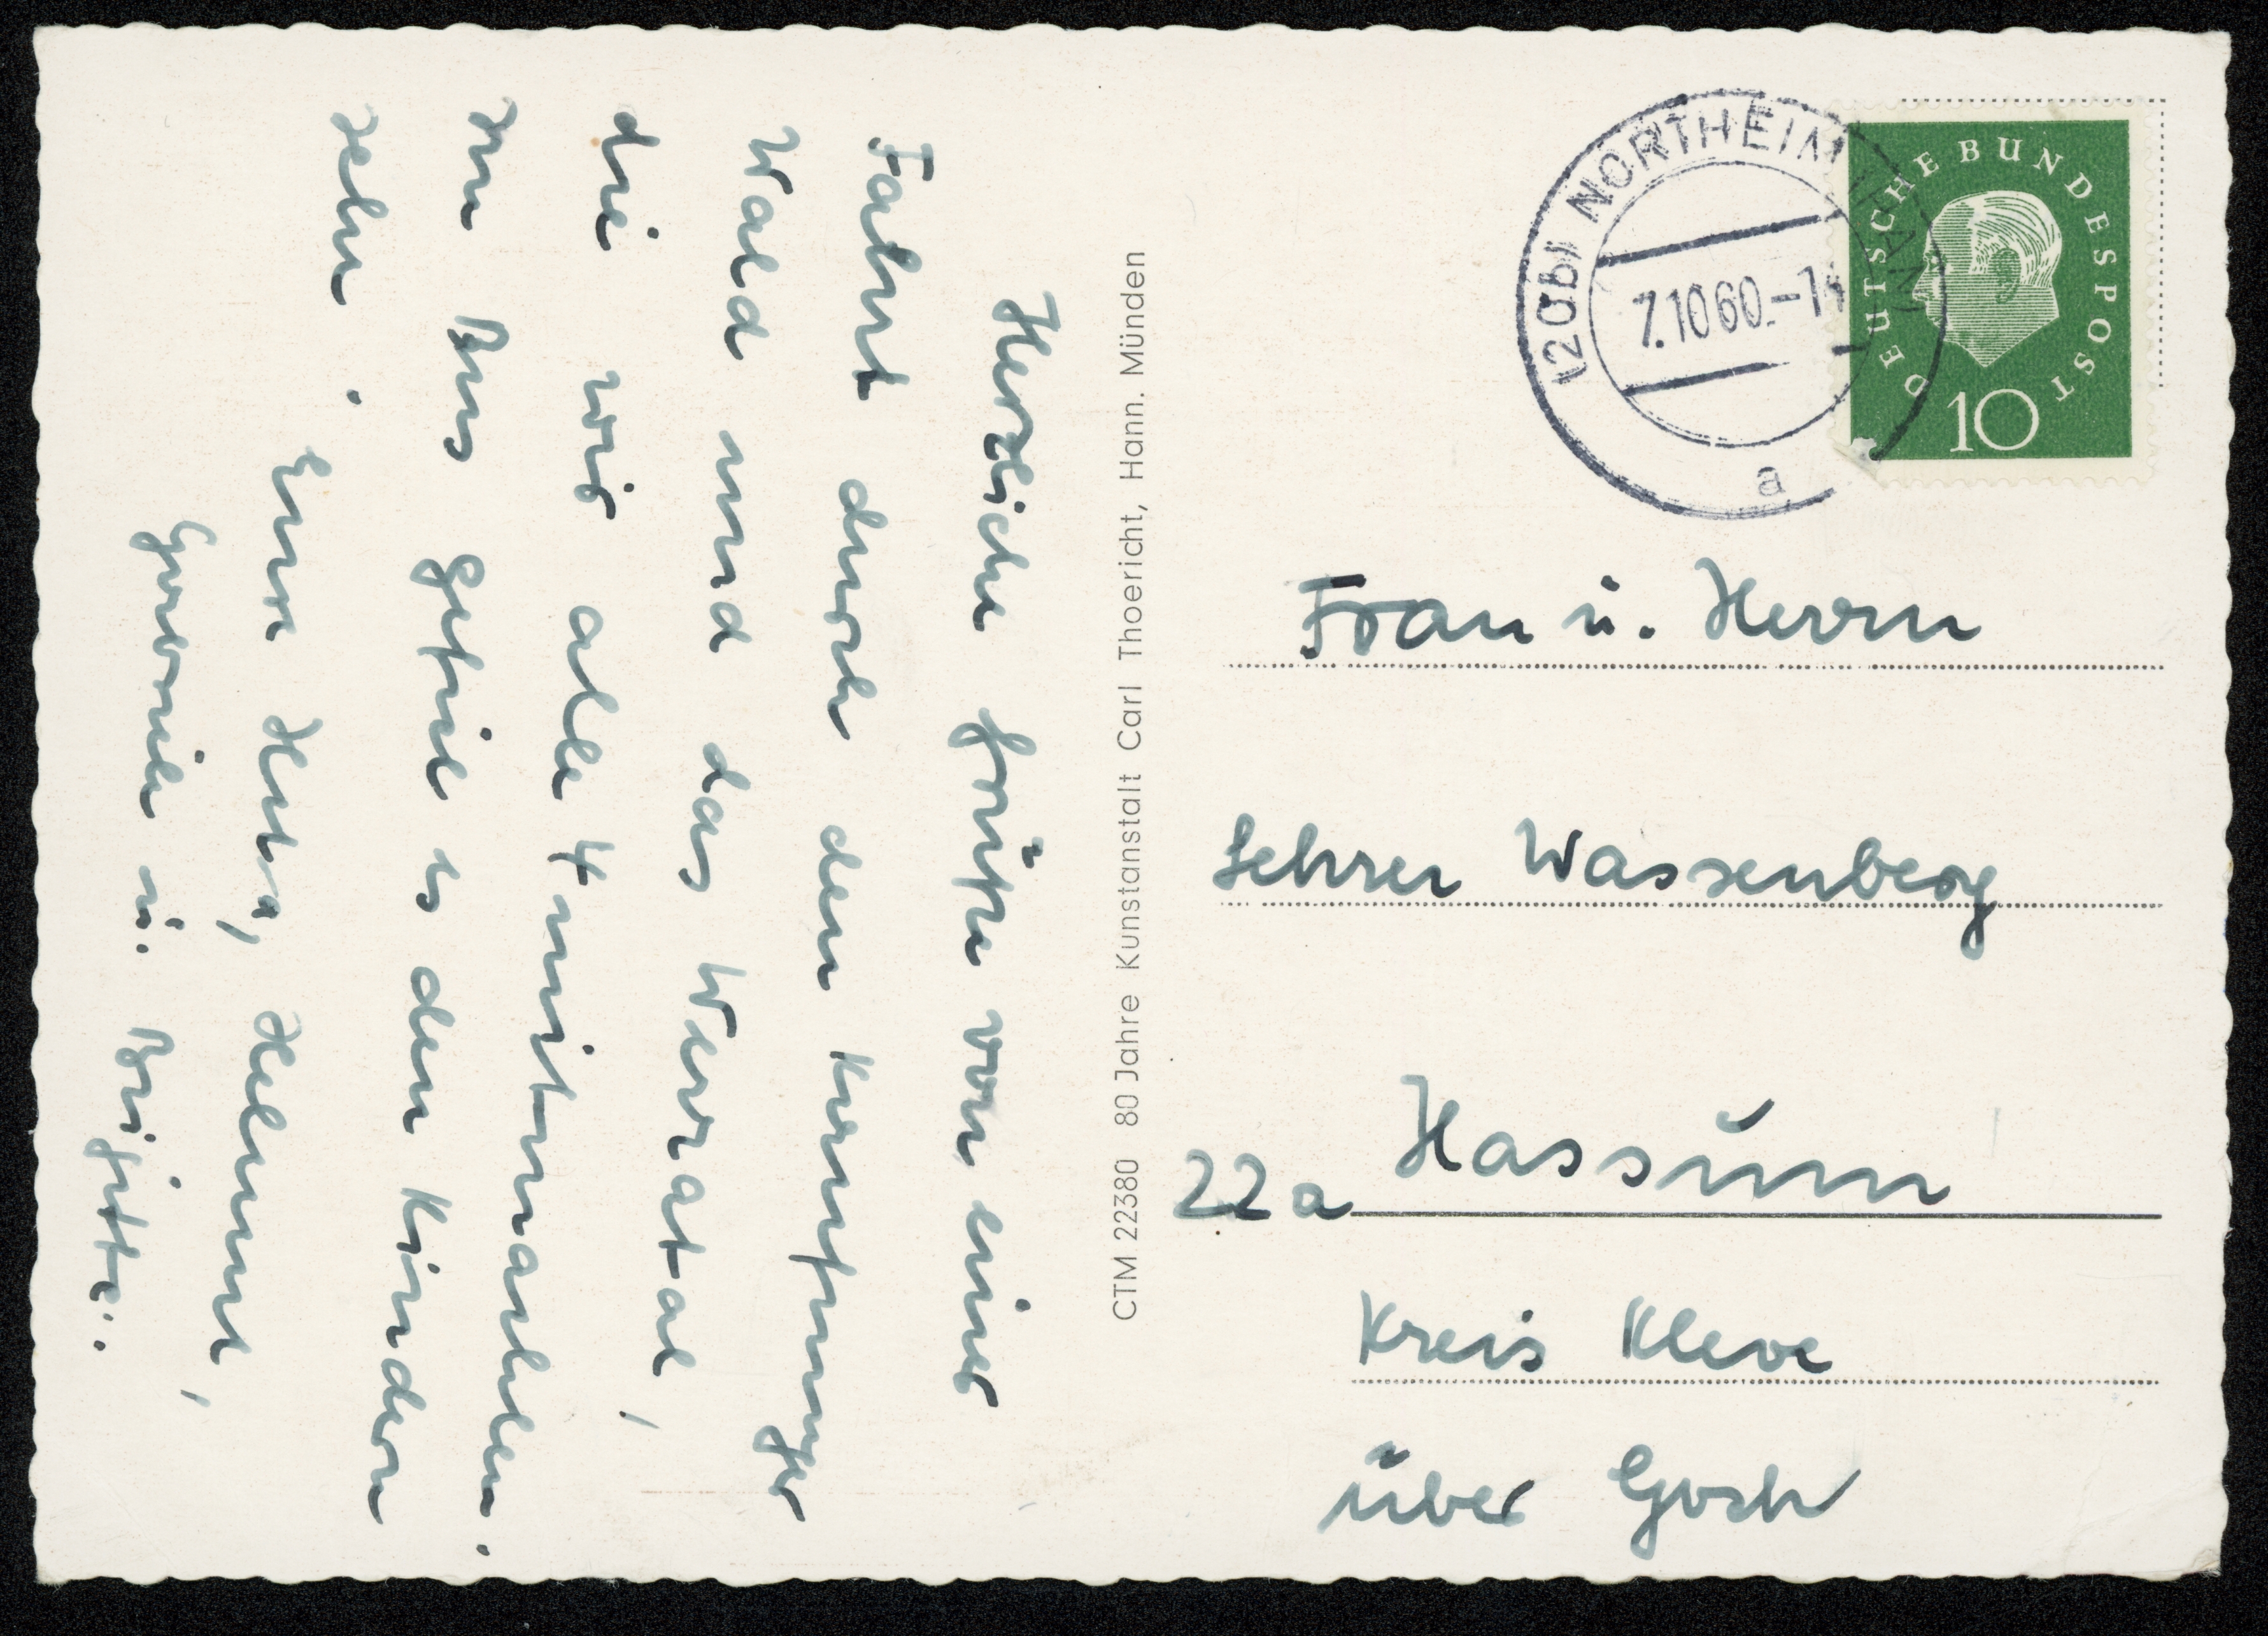 Herzliche Grüße von einer
Fahrt durch den Kaufunger
Wald und das Werratal,
die wir alle 4 mitmachten.
Im Bus gefiel es den Kindern
sehr.
Eure Herta, Helmut,
Gabriele u. Brigitte.
CTM 22380 80 Jahre Kunstanstalt Carl Thoericht, Hann. Münden
(20b) NORTHEIM (HAN)
7.10.60.-1
a
DEUTSCHE BUNDESPOST
10
Frau u. Herrn
Lehrer Wassenberg
22a Hassum
Kreis Kleve
über Goch